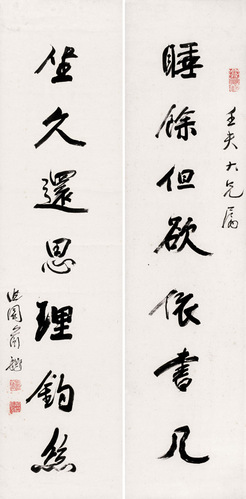 壬夫大兄属
睡餘但欲依書几
坐久還思理釣絲